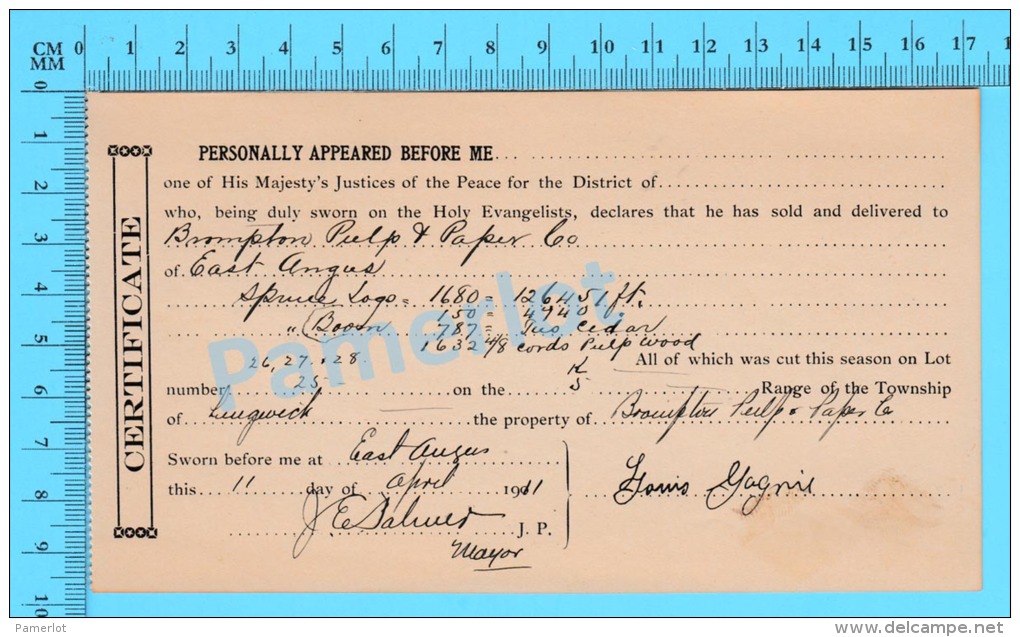 CM 0 1 2 3 4 5 6 7 8 9 10 11 12 13 14 15 16 17
MM
0 1 2 3 4 5 6 7 8 9 10
CERTIFICATE
PERSONALLY APPEARED BEFORE ME
one of His Majesty's Justices of the Peace for the District of
who, being duly sworn on the Holy Evangelists, declares that he has sold and delivered to
Brompton Pulp & Paper Co
of East Angus
Spruce Logs = 1680 = 126451 ft.
" Boom 150 = 4940
787 = Ties Cedar
1632 4/8 cords Pulp wood
26, 27 & 28. All of which was cut this season on Lot
number 25 on the K 5 Range of the Township
of Lingwick the property of Brompton Pulp & Paper Co
Sworn before me at East Angus
this 11 day of April 1911 Louis Gagnie
J. P.
Mayor
Pamerlot
© Pamerlot
delcampe.net